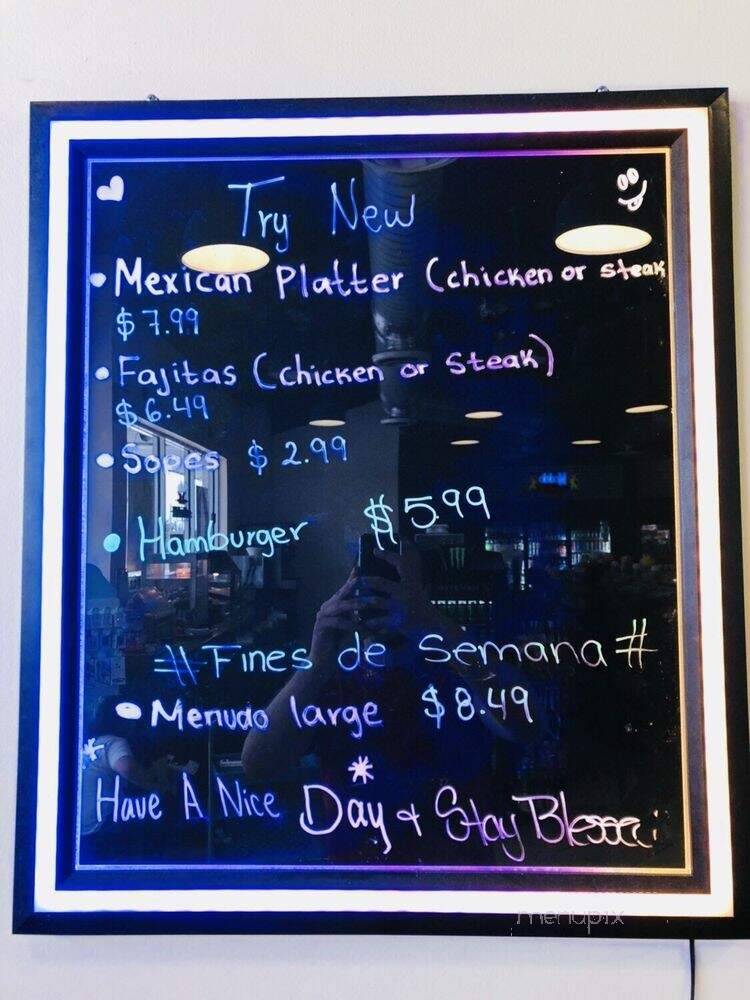 Try New
• Mexican Platter (chicken or steak
$7.99
• Fajitas (chicken or steak)
$6.49
• Sopes $2.99
• Hamburger $5.99
#Fines de Semana#
• Menudo large $8.49
* *
Have A Nice Day + Stay Blessed
menupix